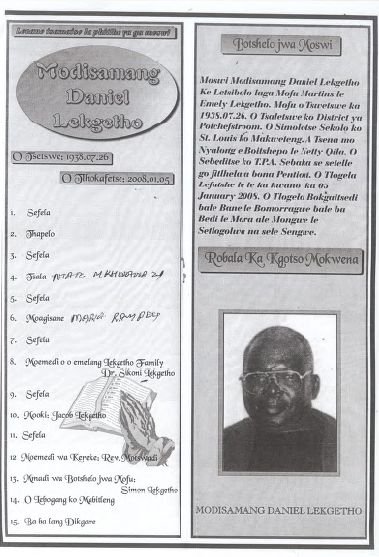 Lenane tsamaiso la phitlho ya ga moswi
Modisamang
Daniel
Lekgetho
O Tsetswe: 1938.07.26
O Tlhokafetse: 2008.01.05
1. Sefela
2. Thapelo
3. Sefela
4. Tsala
5. Sefela
6. Moagisane MARIA
7. Sefela
8. Moemedi o o emelang Lekgetho Family
Dr. Sikoni Lekgetho
9. Sefela
10. Mooki: Jacob Lekgetho
11. Sefela
12 Moemedi wa Kereke: Rev. Motswadi
13. Mmadi wa Botshelo jwa Mofu:
Simon Lekgetho
14. O Lebogang ko Mabitleng
15. Ba ba lang Dikgare
Botshelo jwa Moswi
Moswi Modisamang Daniel Lekgetho
Ke Letsibolo laga Mofu Martins le
Emely Lekgetho. Mofu o Tswetswe ka
1938.07.26. O Tsaletswe ko District ya
Potchefstroom. O Simolotse Sekolo ko
St. Louis ko Makweteng. A Tsena mo
Nyalong e Boitshepo le Netty Qila. O
Sebeditse ko T.P.A. Sebaka se seielle
go fitlhela a bona Pention. O Tlogela
Lefatshe le le ka kwano ka 05
January 2008. O Tlogela Bokgaitsedi
bale Bane le Bomorragwe bale ba
Bedi le Mora ale Mongwe le
Setlogolwa na sele Sengwe.
Robala Ka Kgotso Mokwena
MODISAMANG DANIEL LEKGETHO